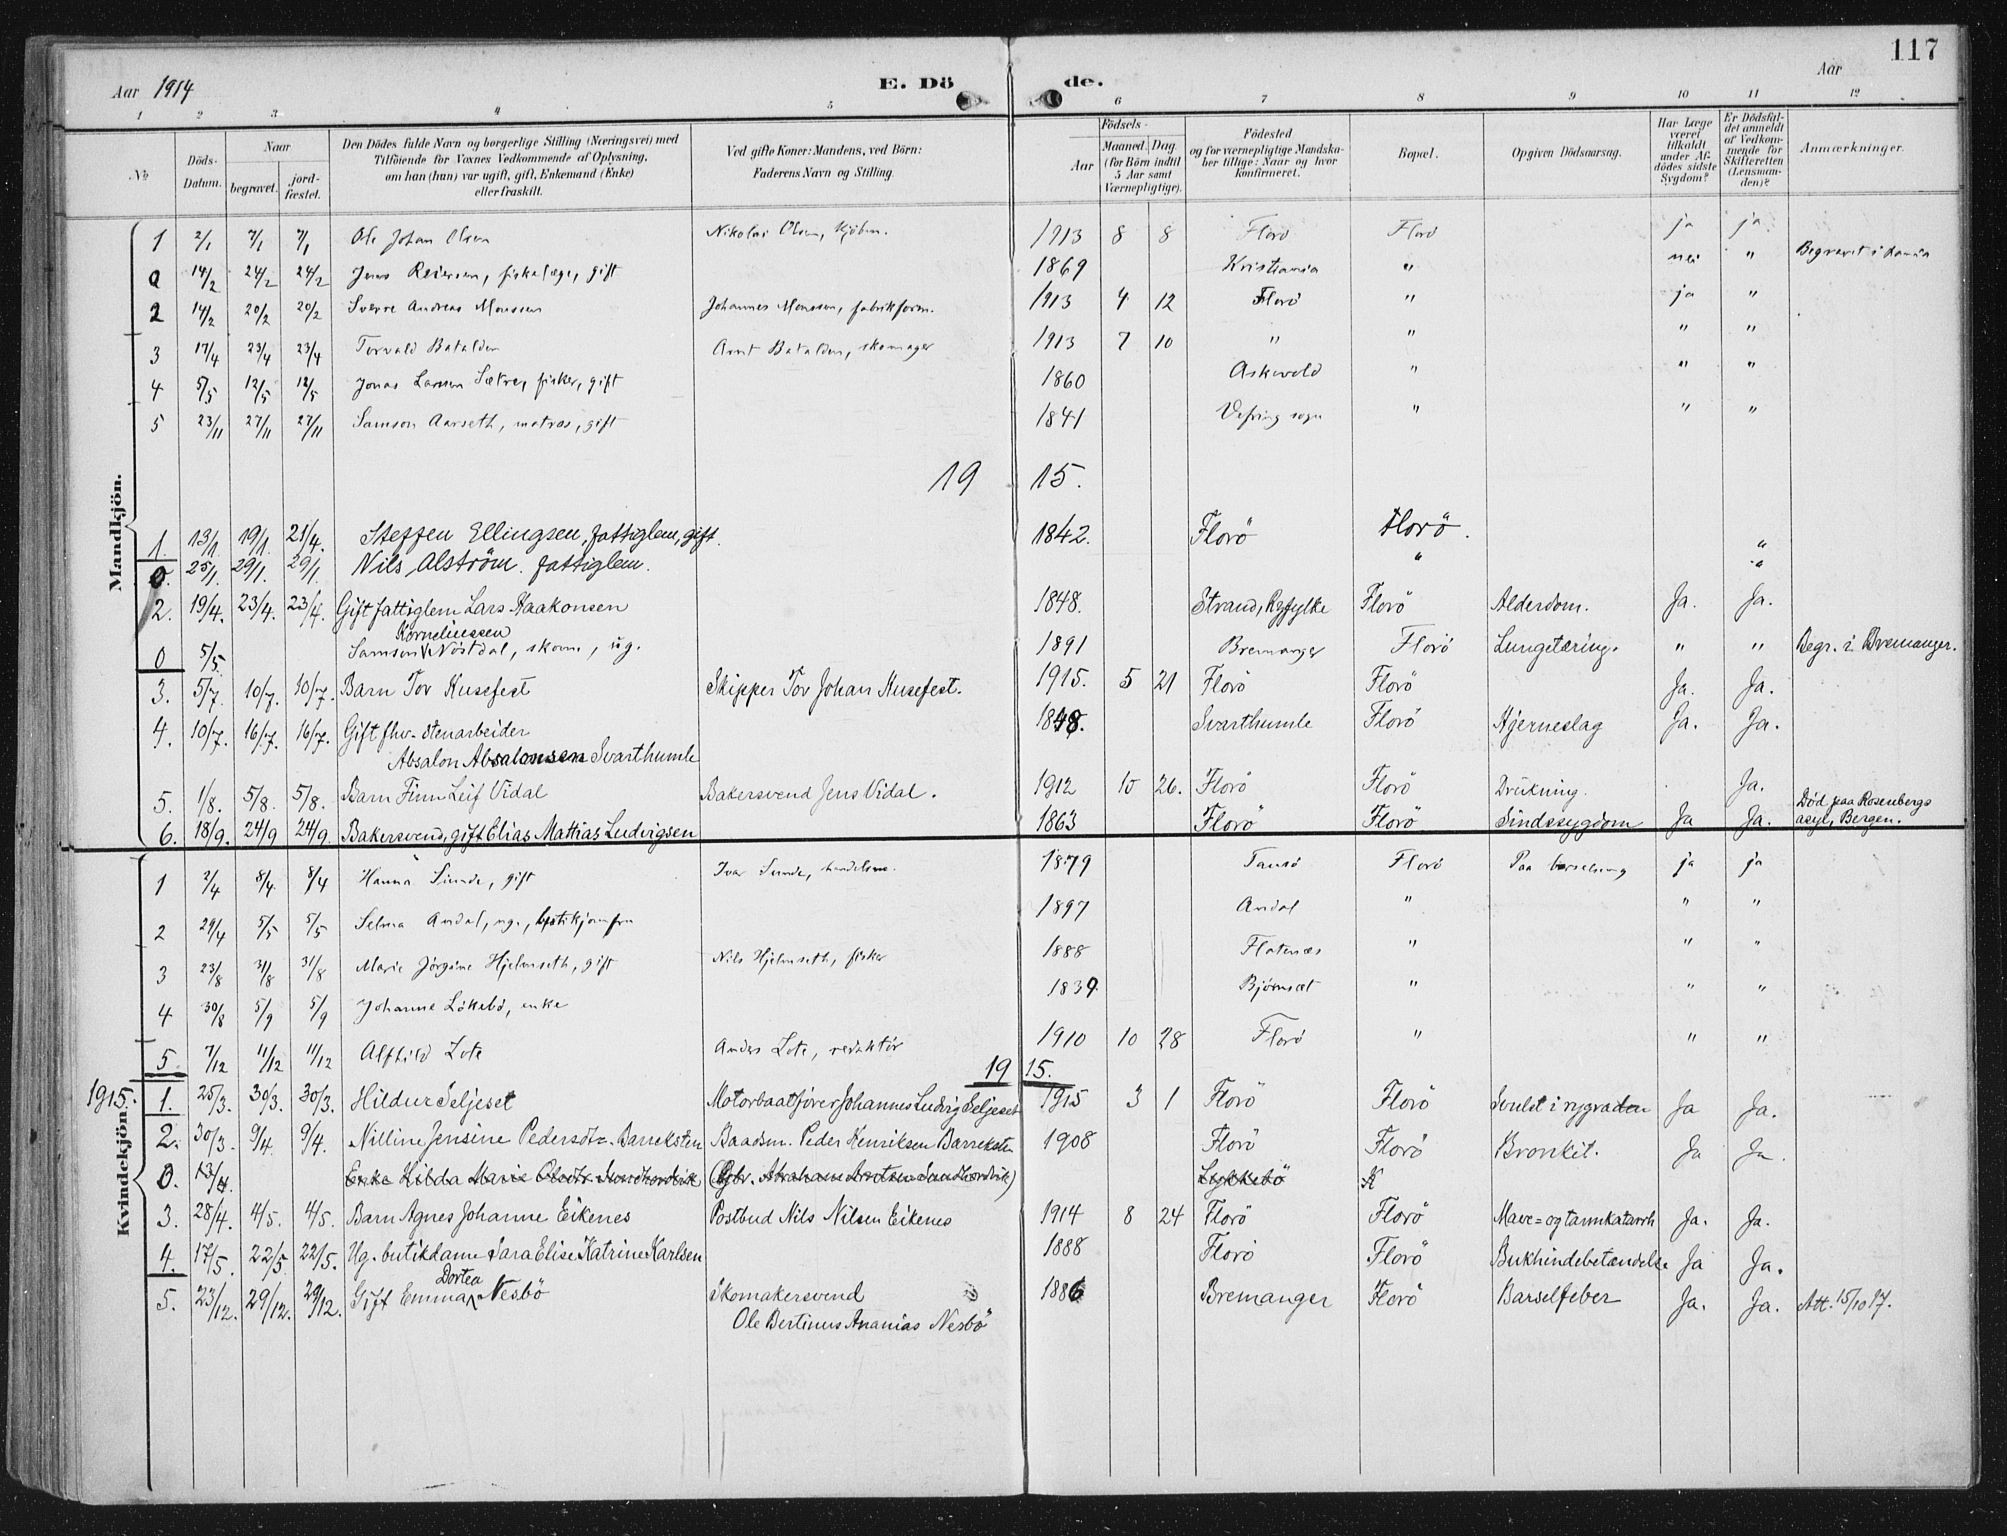 117
Aar 1914 E. Dö de. Aar
1 2 3 4 5 6 7 8 9 10 11 12
No Döds-Datum. Naar begravet. jord-fæstet. Den Dödes fulde Navn og borgerlige Stilling (Næringsvei) med Tilföiende for Voxnes Vedkommende af Oplysning, om han (hun) var ugift, gift, Enkemand (Enke) eller fraskilt. Ved gifte Koner: Mandens, ved Börn: Faderens Navn og Stilling. Födsels- Aar Maaned. Dag. (for Börn indtil 5 Aar samt Værnepligtige). Födested og for værnepligtige Mandska-ber tillige: Naar og hvor Konfirmeret. Bopæl. Opgiven Dödsaarsag. Har Læge været tilkaldt under Af-dödes sidste Sygdom? Er Dödsfal-det anmeldt af Vedkom-mende for Skifteretten (Lensman-den)? Anmærkninger.
Mandkjön.
1 2/1 7/1 7/1 Ole Johan Olsen Nikolai Olsen, kjöbm. 1913 8 8 Florö Florö ja ja
0 14/2 24/2 24/2 Jens Reiersen, fiskelæge, gift 1869 Kristiania " nei " Begravet i
2 14/2 20/2 20/2 Sverre Andreas Monssen Johannes Monssen, fabrikform. 1913 4 12 Florö " ja "
3 17/4 23/4 23/4 Torvald Batalden Arnt Batalden, skomager 1913 7 10 " " " "
4 5/5 12/5 12/5 Jonas Larssen Sætre, fisker, gift 1860 Askevold " " "
5 23/11 27/11 27/11 Samson Aarseth, matros, gift 1841 Vefring sogn " " "
19 15.
1. 13/1. 19/1. 21/4. Steffen Ellingsen, fattiglem, gift. 1842. Florö Florö. "
0. 25/1. 29/1. 29/1. Nils Alström. fattiglem. " "
2. 19/4. 23/4. 23/4. Gift fattiglem Lars Haakonsen 1848. Strand, Ryfylke Florö Alderdom. Ja. Ja.
Korneliussen
0 5/5. Samson Nöstdal, skom, ug. 1891 Bremanger Florö Lungetæring. " " Begr. i Bremanger.
3. 5/7. 10/7. 10/7. Barn Tov Husefest Skipper Tov Johan Husefest. 1915. 5 21 Florö Florö Ja. Ja.
4. 10/7. 16/7. 16/7. Gift fhv. stenarbeider 1848. Svarthumle Florö Hjerneslag Ja. Ja.
Absalon Absalonsen Svarthumle
5. 1/8. 5/8. 5/8. Barn Finn Leif Vidal Bakersvend Jens Vidal. 1912 10 26. Florö Florö Drukning. Ja.
6. 18/9. 24/9 24/9. Bakersvend, gift Elias Mattias Ludvigsen 1863 Florö Florö Sindssygdom Ja Ja. Död paa Rosenbergs asyl, Bergen.
Kvindekjön.
1 2/4 8/4 8/4 Hanna Sunde, gift Ivar Sunde, handelsm. 1879 Tansö Florö Paa barselseng ja ja
2 29/4 5/5 5/5 Selma Andal, ug., 1897 Andal " " "
3 23/8 31/8 31/8 Marie Jörgine Hjelmseth, gift Nils Hjelmseth, fisker 1888 Flatenæs " " "
4 30/8 5/9 5/9 Johanne Lökebö, enke 1839 Bjørnset " " "
5 7/12 11/12 11/12 Alfhild Lote Anders Lote, redaktör 1910 10 28 Florö " " "
19 15.
1915. 1. 25/3. 30/3. 30/3. Hildur Seljeset Motorbaatförer Johannes Ludvig Seljeset 1915 3 1 Florö Florö Svulst i rygraden Ja Ja.
2. 30/3. 9/4. 9/4. Nilline Jensine Pedersdt. Barreksten Baadsm. Peder Henriksen Barreksten 1908 Florö Florö Bronkit. Ja Ja.
0. 13/4. Enke Hilda Marie Olsdtr. Sandhordvik (Gbr. Abraham Sandhordvik) Lykkebö K
3. 28/4. 4/5. 4/5. Barn Agnes Johanne Eikenes Postbud Nils Nilsen Eikenes 1914 8 24 Florö Florö Mave- og tarmkatarrh Ja. Ja.
4. 17/5. 22/5 22/5. Ug. butikdame Sara Elise Katrine Karlsen 1888 Florö Florö Bukhindebetændelse Ja Ja.
Dortea
5. 23/12. 29/12. 29/12. Gift Emma Nesbö Skomakersvend 1886 Bremanger Florö Barselfeber Ja. Ja. Att. 15/10 17.
Ole Bertinus Ananias Nesbö